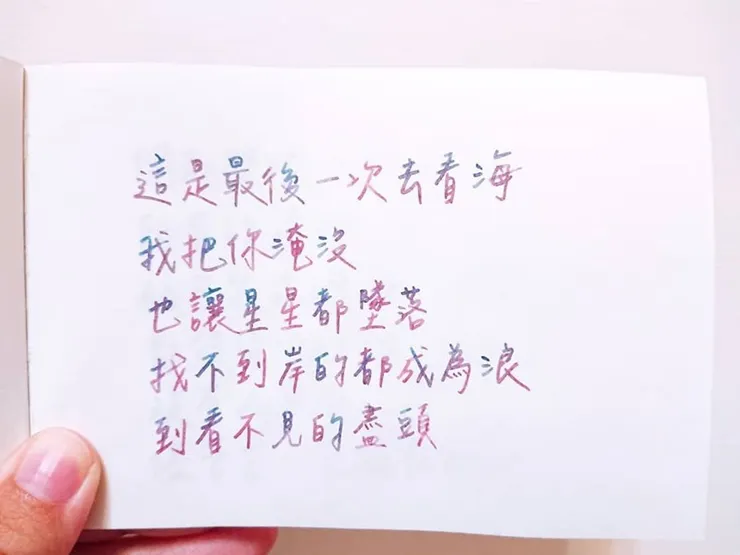 這是最後一次去看海
我把你淹沒
也讓星星都墜落
找不到岸的都成為浪
到看不見的盡頭